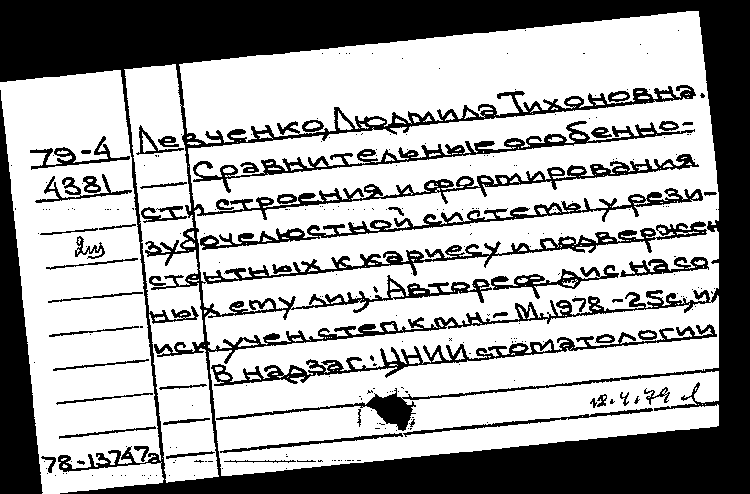 Левченко, Людмила Тихоновна.
79-4
4381
Сравнительные особенно-
сти строения и формирования
зубочелюстной системы у рези-
стентных к кариесу и подвержен
ных ему лиц: Автореф. дис. на со-
иск. учен. степ. к.м.н. - М., 1978. - 25с., ил
В надзаг.: ЦНИИ стоматологии
12.4.79
78-13747а